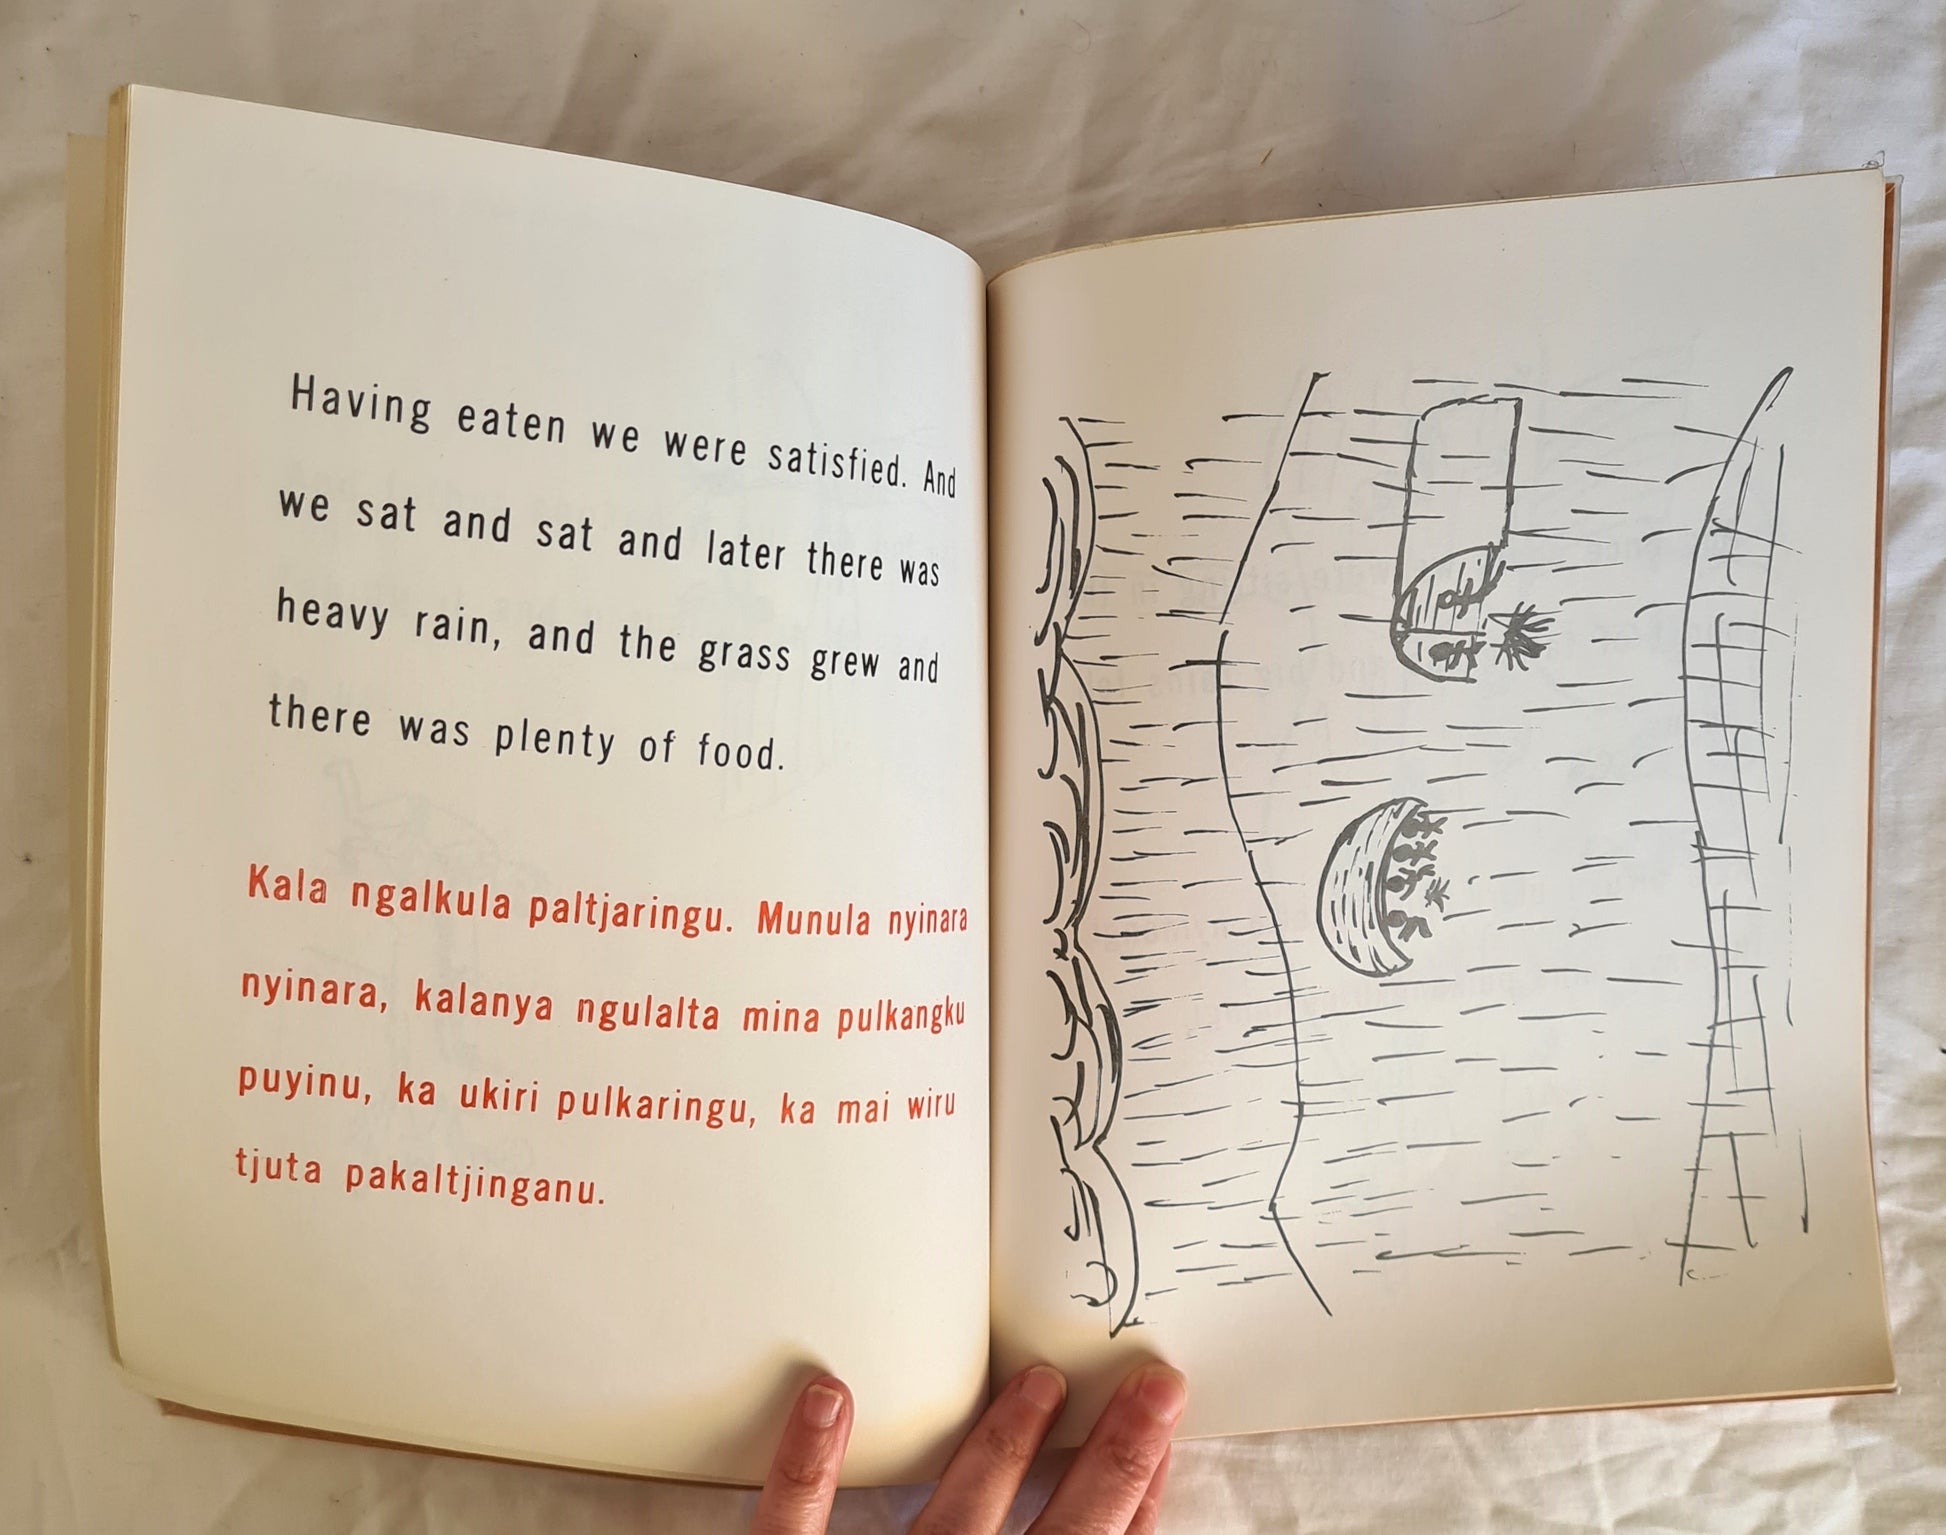 Having eaten we were satisfied. And
we sat and sat and later there was
heavy rain, and the grass grew and
there was plenty of food.
Kala ngalkula paltjaringu. Munula nyinara
nyinara, kalanya ngulalta mina pulkangku
puyinu, ka ukiri pulkaringu, ka mai wiru
tjuta pakaltjinganu.